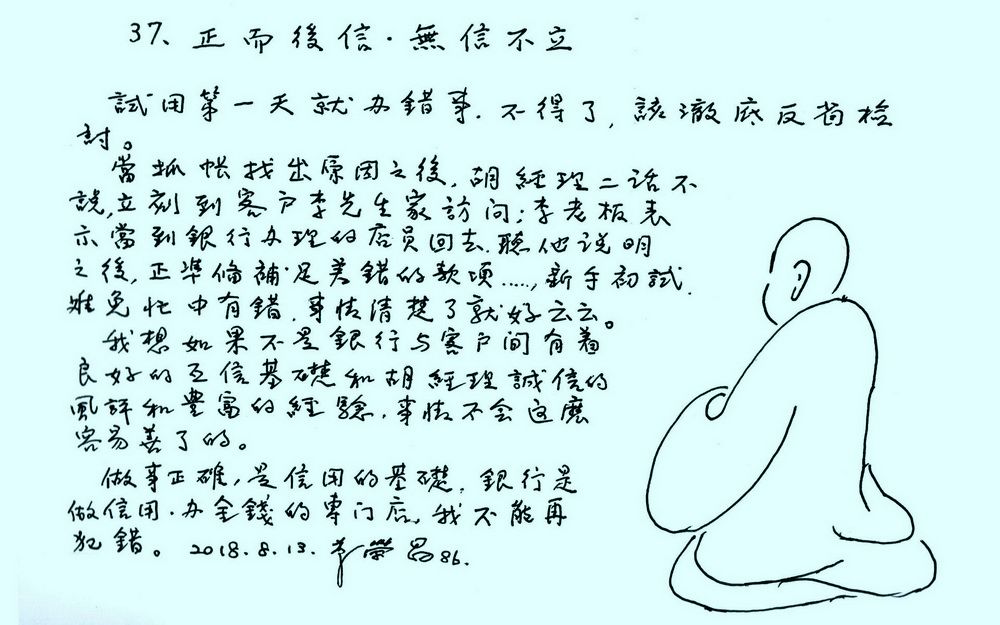 37、正而後信．無信不立
試用第一天就办錯事．不得了，該澈底反省檢
討。
當抓帐找出原因之後，胡經理二话不
說，立刻到客户李先生家訪问；李老板表
示當到銀行办理的店员回去．聽他说明
之後，正準俻補足差錯的款項.....，新手初試．
难免忙中有錯．事情清楚了就好云云。
我想如果不是銀行与客户间有着
良好的互信基礎和胡經理誠信的
風評和豊富的經驗．事情不会这麽
容易善了的。
做事正確，是信用的基礎．銀行是
做信用．办金錢的専门店。我不能再
犯錯。2018.8.13. 榮昌86.